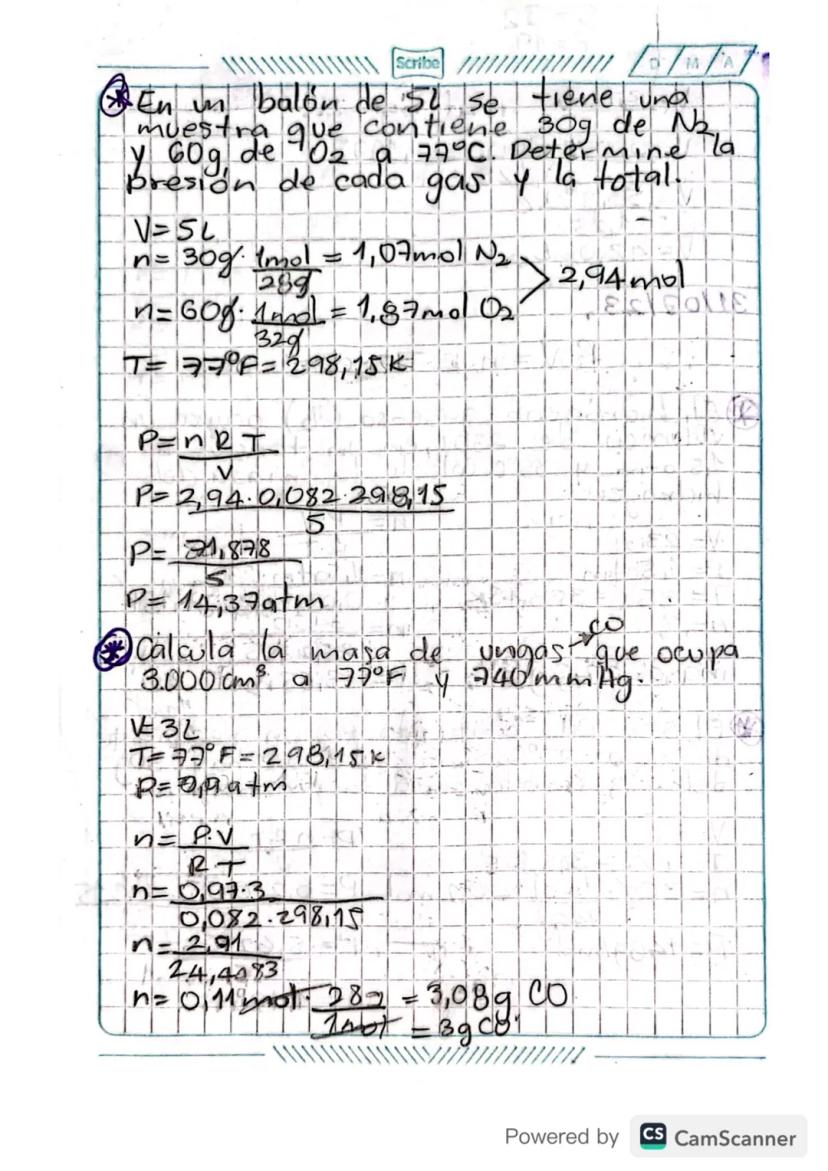 Scribe
D M A
En un balón de 5L se tiene una
muestra que contiene 30g de N2
y 60g de O2 a 77°C. Determine la
presión de cada gas y la total.
V=5L
n= 30g · 1mol / 28g = 1,07mol N2
> 2,94mol
n= 60g · 1mol / 32g = 1,87mol O2
T= 77°F = 298,15K
P= n R T / V
P= 2,94·0,082·298,15 / 5
P= 71,878 / 5
P= 14,37atm
Calcula la masa de un gas → CO que ocupa
3.000 cm³ a 77°F y 740mmHg.
V= 3L
T= 77°F = 298,15K
P= 0,9atm
n= P.V / R T
n= 0,97·3 / 0,082·298,15
n= 2,91 / 24,4483
n= 0,11 mol · 28g / 1mol = 3,08g CO
= 3g CO
Powered by CS CamScanner